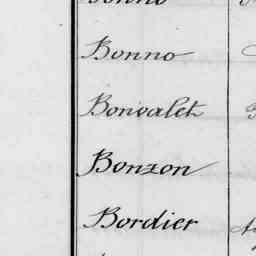 Bonno
Bonvalet
Bonzon
Bordier